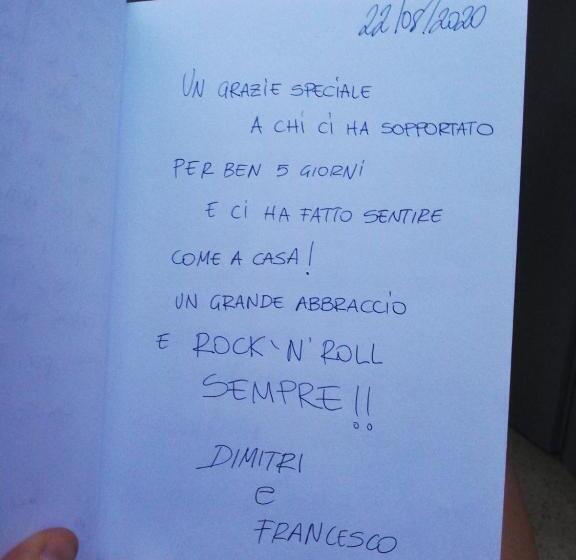 22/08/2020
UN GRAZIE SPECIALE
A CHI CI HA SOPPORTATO
PER BEN 5 GIORNI
E CI HA FATTO SENTIRE
COME A CASA!
UN GRANDE ABBRACCIO
E ROCK'N'ROLL
SEMPRE!!
DIMITRI
e
FRANCESCO